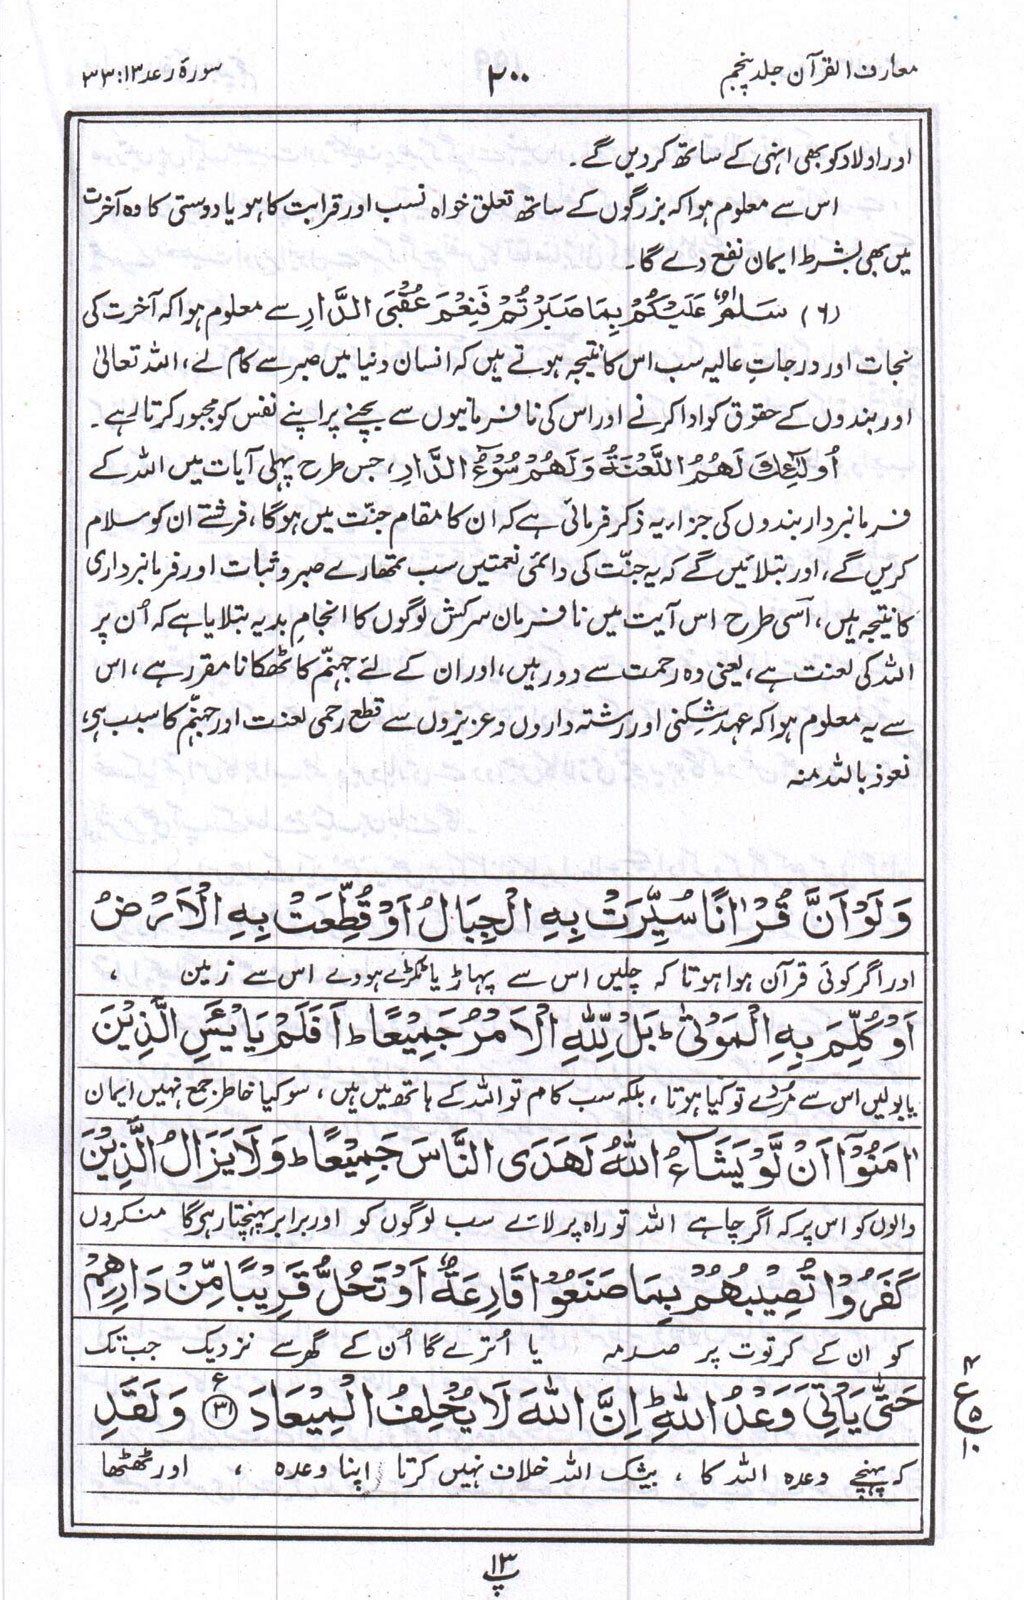 معارف القرآن جلد پنجم
۲۰۰
سورۃ رعد ۱۳: ۳۳
اور اولاد کو بھی انہی کے ساتھ کردیں گے۔
اس سے معلوم ہوا کہ بزرگوں کے ساتھ تعلق خواہ نسب اور قرابت کا ہو یا دوستی کا وہ آخرت
میں بھی بشرط ایمان نفع دے گا۔
(۶) سَلٰمٌ عَلَیْکُمْ بِمَا صَبَرْتُمْ فَنِعْمَ عُقْبَی الدَّارِ سے معلوم ہوا کہ آخرت کی
نجات اور درجاتِ عالیہ سب اس کا نتیجہ ہوتے ہیں کہ انسان دنیا میں صبر سے کام لے، اللہ تعالیٰ
اور بندوں کے حقوق کو ادا کرنے اور اس کی نافرمانیوں سے بچنے پر اپنے نفس کو مجبور کرتا رہے۔
اُولٰٓئِکَ لَهُمُ اللَّعْنَةُ وَلَهُمْ سُوْٓءُ الدَّارِ، جس طرح پہلی آیات میں اللہ کے
فرمانبردار بندوں کی جزاء یہ ذکر فرمائی ہے کہ ان کا مقام جنّت میں ہوگا، فرشتے ان کو سلام
کریں گے، اور بتلائیں گے کہ یہ جنّت کی دائمی نعمتیں سب تمھارے صبر و ثبات اور فرمانبرداری
کا نتیجہ ہیں، اسی طرح اس آیت میں نافرمان سرکش لوگوں کا انجامِ بد یہ بتلایا ہے کہ اُن پر
اللہ کی لعنت ہے، یعنی وہ رحمت سے دور ہیں، اور ان کے لئے جہنّم کا ٹھکانا مقرر ہے، اس
سے یہ معلوم ہوا کہ عہد شکنی اور رشتہ داروں و عزیزوں سے قطع رحمی لعنت اور جہنّم کا سبب ہی،
نعوذ باللہ منہ
وَلَوْ اَنَّ قُرْاٰنًا سُیِّرَتْ بِهِ الْجِبَالُ اَوْ قُطِّعَتْ بِهِ الْاَرْضُ
اور اگر کوئی قرآن ہوا ہوتا کہ چلیں اس سے پہاڑ یا ٹکڑے ہووے اس سے زمین ،
اَوْ کُلِّمَ بِهِ الْمَوْتٰی ؕ بَلْ لِّلّٰهِ الْاَمْرُ جَمِیْعًا ؕ اَفَلَمْ یَایْئَسِ الَّذِیْنَ
یا بولیں اس سے مُردے تو کیا ہوتا ، بلکہ سب کام تو اللہ کے ہاتھ میں ہیں ، سو کیا خاطر جمع نہیں ایمان
اٰمَنُوْٓا اَنْ لَّوْ یَشَآءُ اللّٰهُ لَهَدَی النَّاسَ جَمِیْعًا ؕ وَلَا یَزَالُ الَّذِیْنَ
والوں کو اس پر کہ اگر چاہے اللہ تو راہ پر لائے سب لوگوں کو اور برابر پہنچتا رہی گا منکروں
کَفَرُوْا تُصِیْبُهُمْ بِمَا صَنَعُوْا قَارِعَةٌ اَوْ تَحُلُّ قَرِیْبًا مِّنْ دَارِهِمْ
کو ان کے کرتوت پر صدمہ یا اُترے گا اُن کے گھر سے نزدیک جب تک
حَتّٰی یَاْتِیَ وَعْدُ اللّٰهِ ؕ اِنَّ اللّٰهَ لَا یُخْلِفُ الْمِیْعَادَ ﴿۳۱﴾ وَلَقَدِ
ع
کہ پہنچے وعدہ اللہ کا ، بیشک اللہ خلاف نہیں کرتا اپنا وعدہ ، اور ٹھٹھا
پ ۱۳